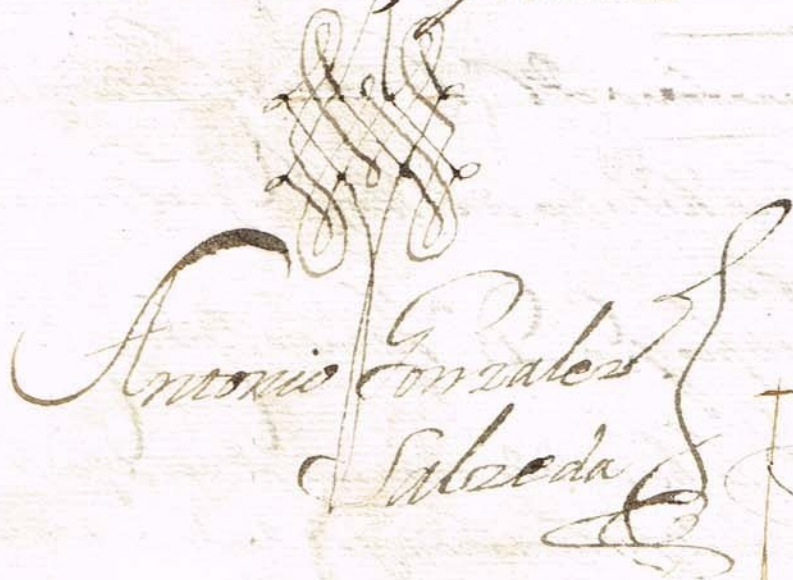 Antonio Gonzalez
Salzeda